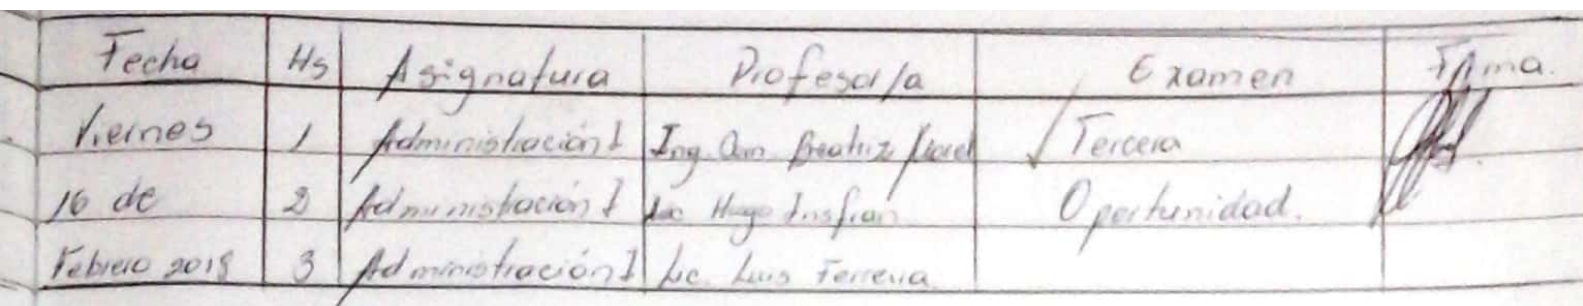 Fecha Hs Asignatura Profesor/a Examen Firma.
Viernes 1 Administración I Ing. Com. Beatriz Tercera
16 de 2 Administración I Lic. Hugo Insfran Oportunidad.
Febrero 2018 3 Administración I Lic. Luis Ferreira